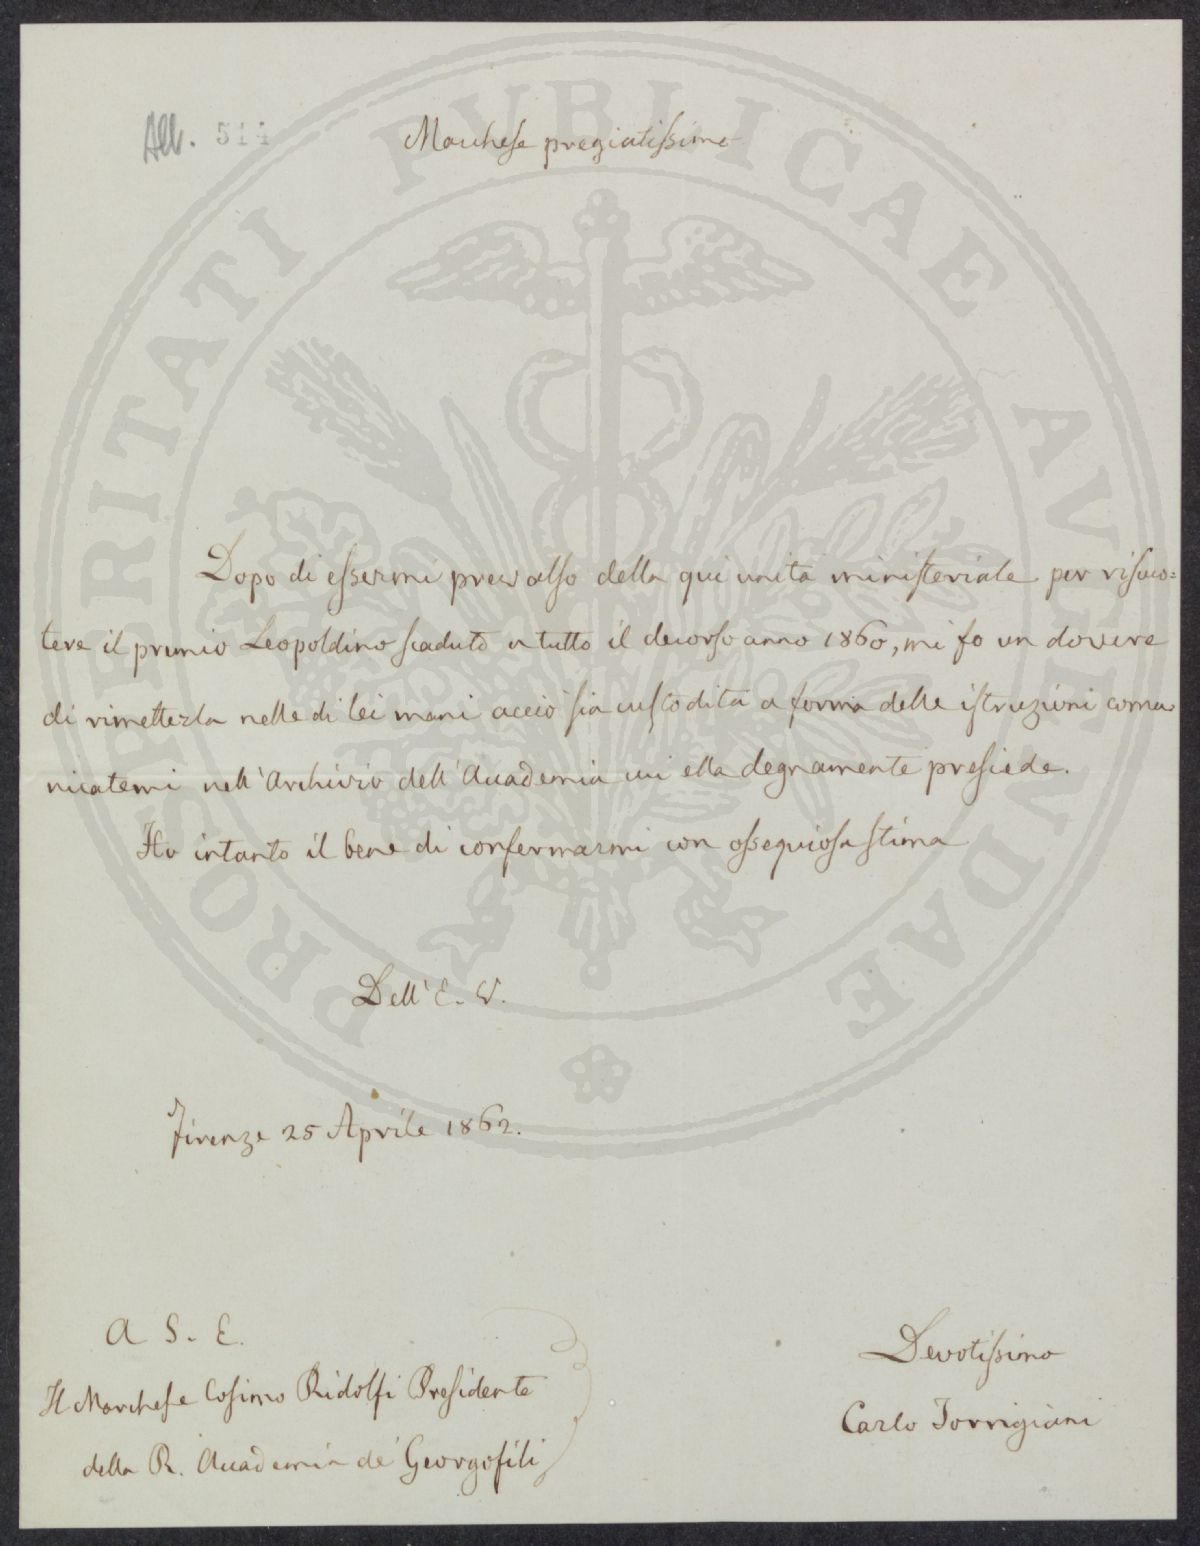 All. 514
Marchese pregiatissimo
Dopo di essermi prevalso della qui unita ministeriale per riscuo=
tere il premio Leopoldino scaduto a tutto il decorso anno 1860, mi fo un dovere
di rimetterla nelle di lei mani acciò sia custodita a forma delle istruzioni comu
nicatemi nell'Archivio dell'Accademia cui ella degnamente presiede.
Ho intanto il bene di confermarmi con ossequiosa stima
Dell'E. V.
Firenze 25 Aprile 1862.
A S. E.
Il Marchese Cosimo Ridolfi Presidente
della R. Accademia de' Georgofili
Devotissimo
Carlo Torrigiani
PROSPERITATI PVBLICAE AVGENDAE